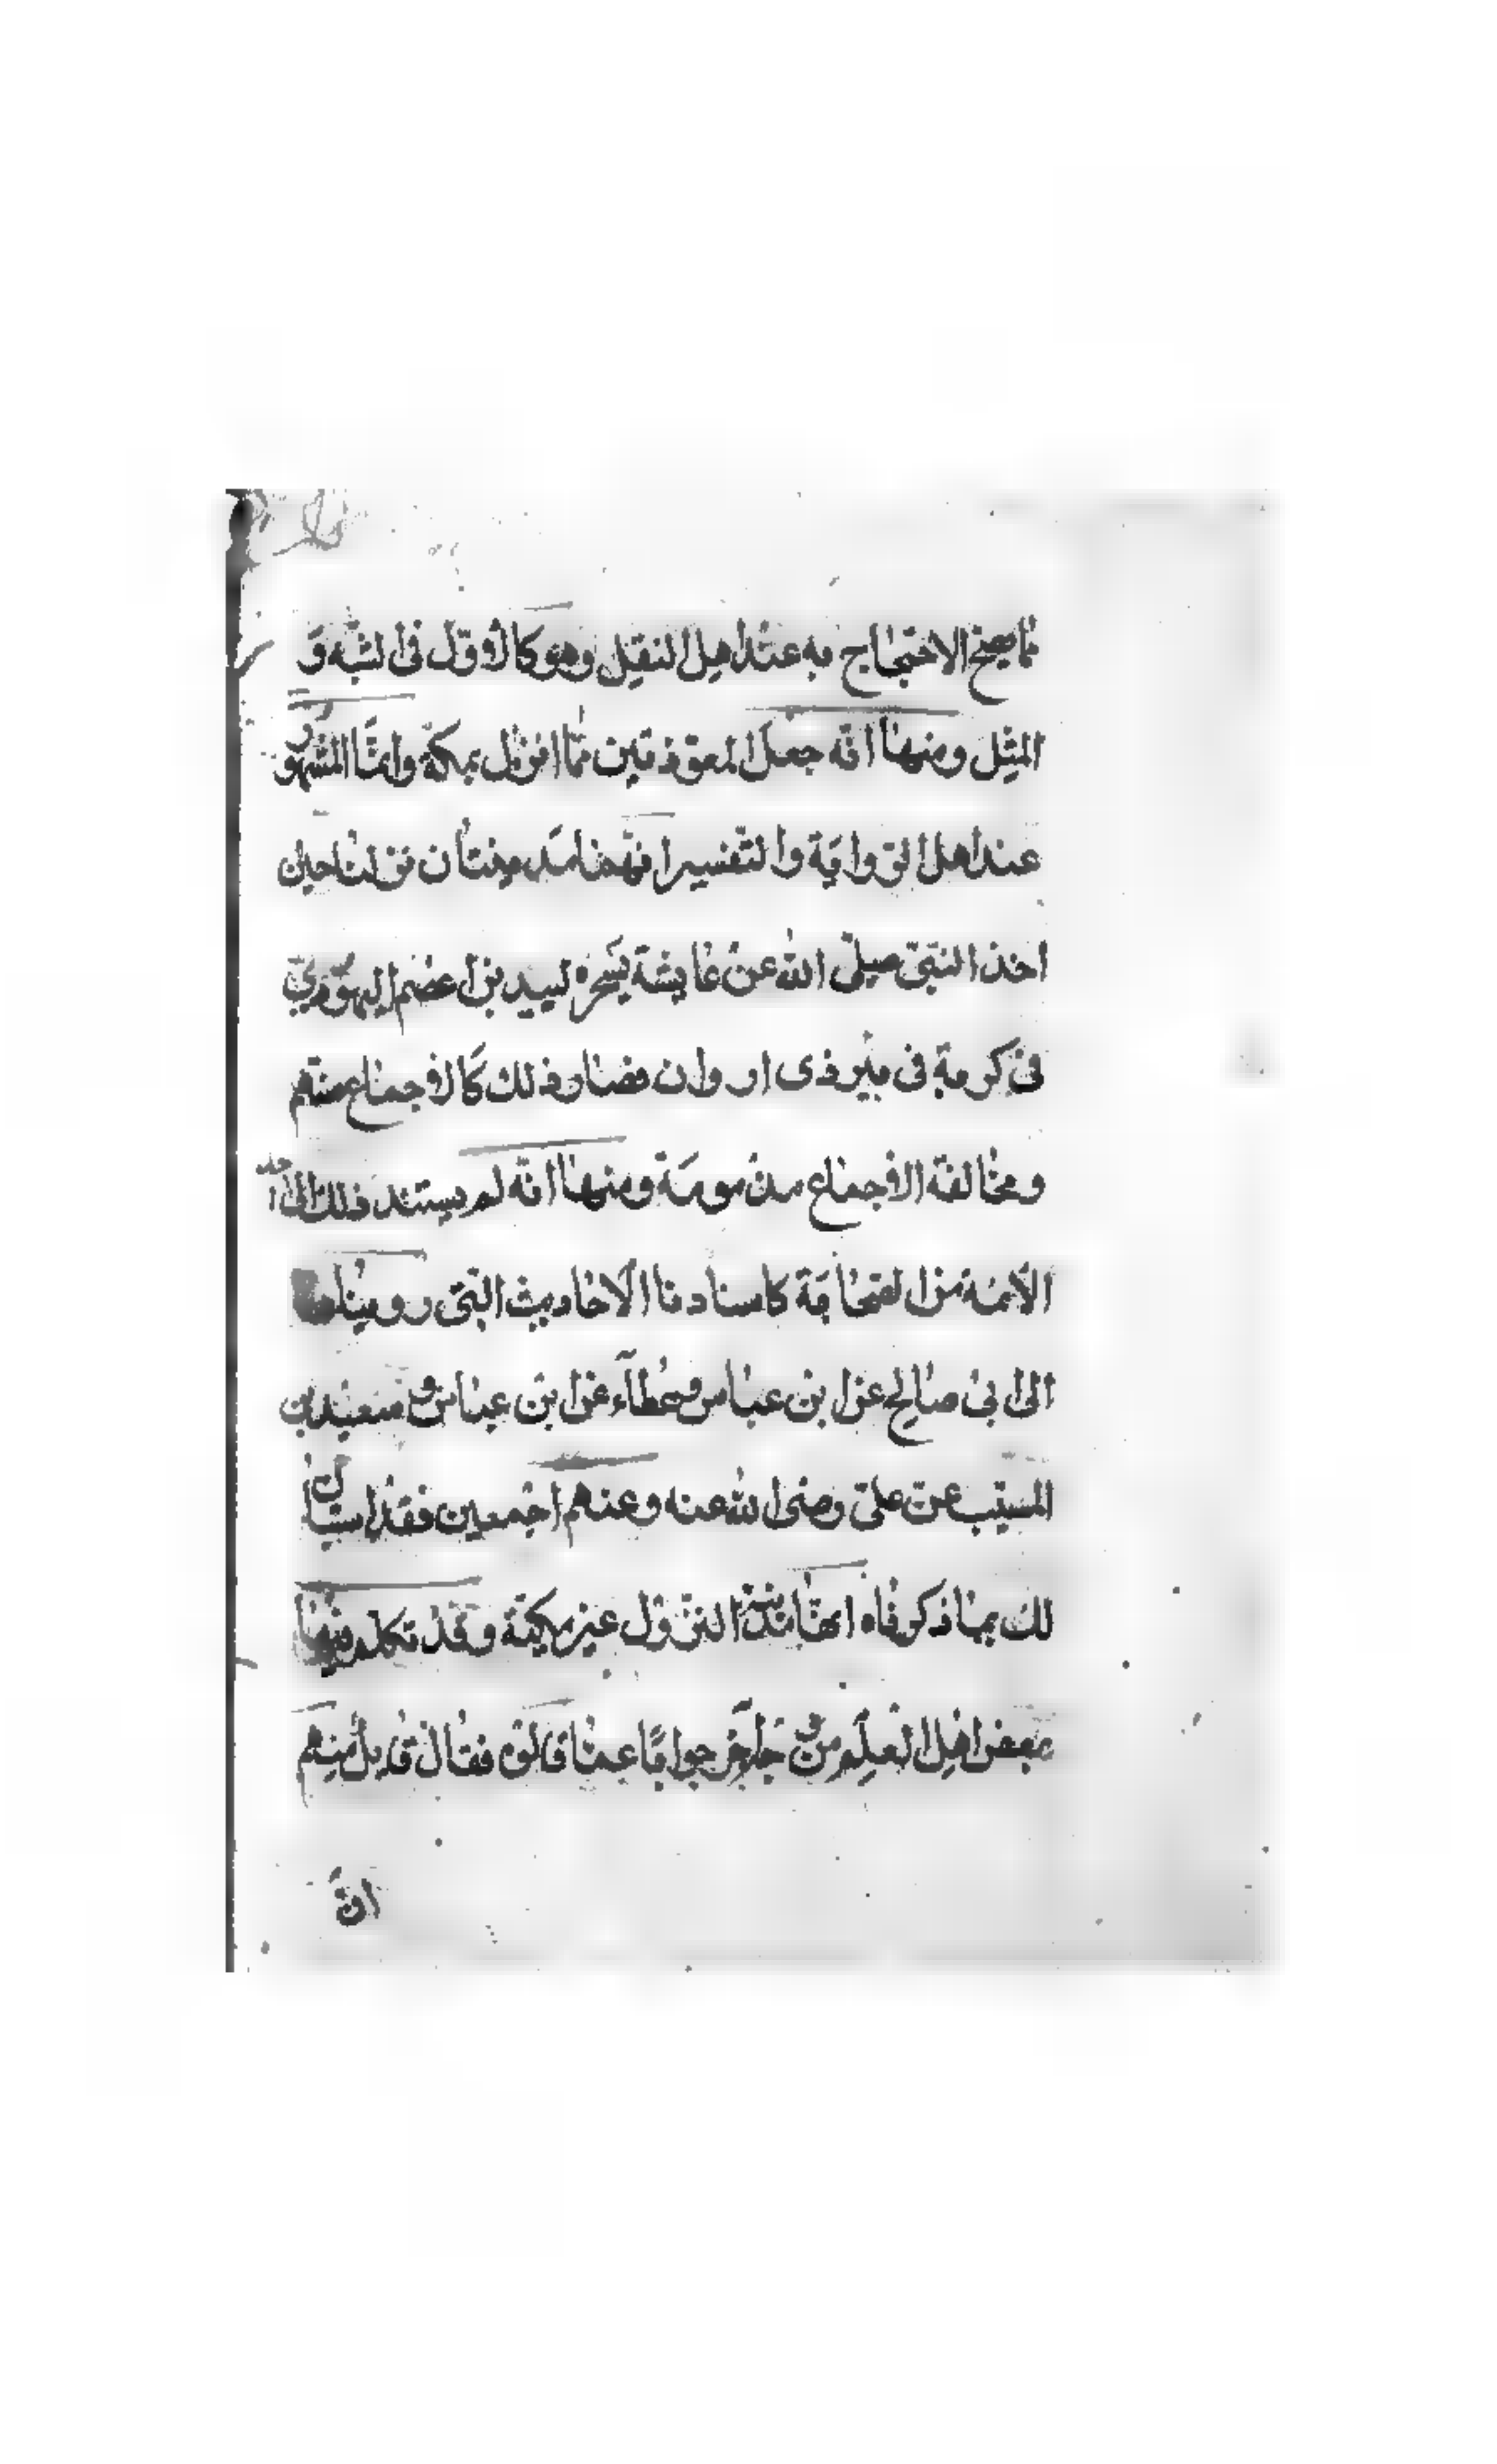 مما يصح الاحتجاج به عند اهل النقل وهو كالاوّل فى الشبه و
المثل ومنها انّه جعل المعوّذتين ممّا انزل بمكّة وانّما المشهور
عند اهل الرواية والتّفسير انّهما مدينتان نزلتا حين
اخذ النبىّ صلّى الله عن عايشة بسحره لبيد بن اعصم اليهودي
فى كرمة فى بئر ذى اروان فصار ذلك كالاجماع منهم
ومخالفة الاجماع مذمومة ومنها انّه لم يستند ذلك الى احد
الائمة من الصحابة كاسنادنا الاحاديث التى رويناها
الى ابى صالح عن ابن عباس وعطآء عن ابن عباس و سعيد بن
المسيّب عن علىّ رضى الله عنه وعنهم اجمعين فقد استبان
لك بما ذكرناه انّها مدنيّة النزول غير مكيّة وقد تكلم فيها
بعض اهل العلم من وجه آخر جوابا عما قالوه فقال قد يل منهم
انّ